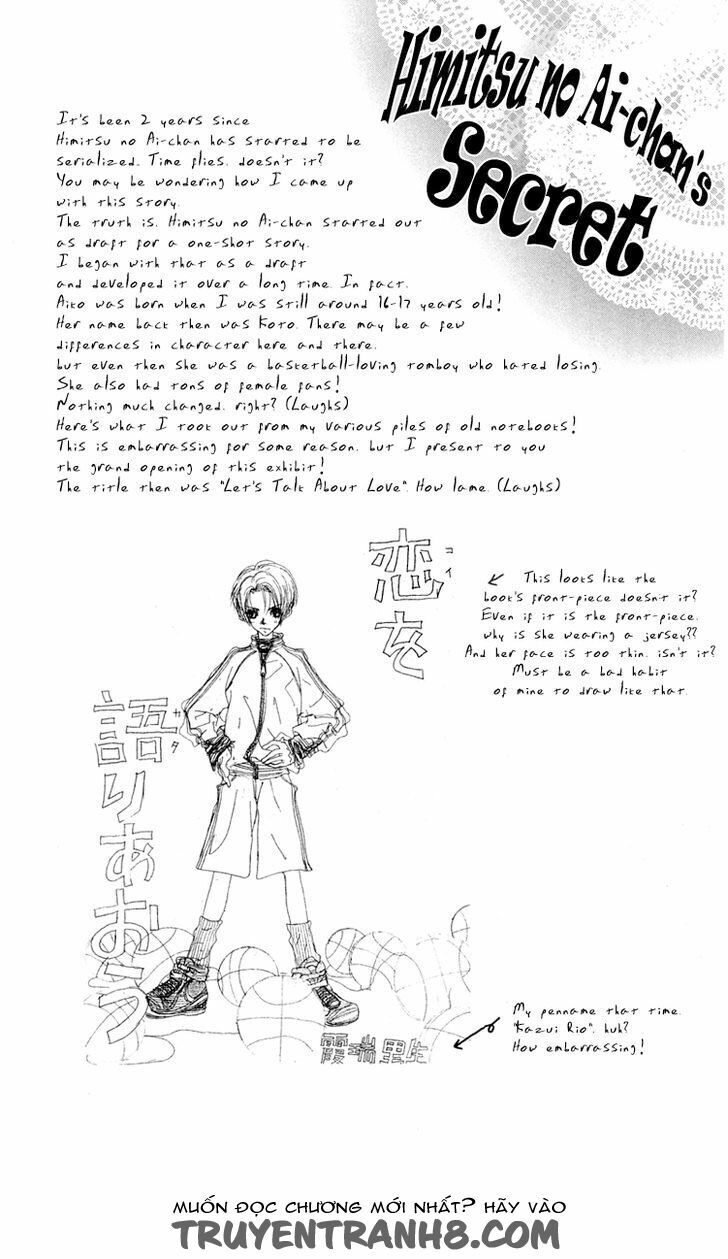 Himitsu no Ai-chan's
Secret
It's been 2 years since
Himitsu no Ai-chan has started to be
serialized. Time flies, doesn't it?
You may be wondering how I came up
with this story.
The truth is, Himitsu no Ai-chan started out
as draft for a one-shot story.
I began with that as a draft
and developed it over a long time. In fact,
Aiko was born when I was still around 16-17 years old!
Her name back then was Koto. There may be a few
differences in character here and there,
but even then she was a basketball-loving tomboy who hated losing.
She also had tons of female fans!
Nothing much changed, right? (Laughs)
Here's what I took out from my various piles of old notebooks!
This is embarrassing for some reason, but I present to you
the grand opening of this exhibit!
The title then was "Let's Talk About Love". How lame. (Laughs)
恋を
コイ
語りあおう
カタ
This looks like the
book's front-piece doesn't it?
Even if it is the front-piece,
why is she wearing a jersey??
And her face is too thin, isn't it?
Must be a bad habit
of mine to draw like that.
My penname that time,
"Kazui Rio", huh?
How embarrassing!
霞瑞里生
MUỐN ĐỌC CHƯƠNG MỚI NHẤT? HÃY VÀO
TRUYENTRANH8.COM